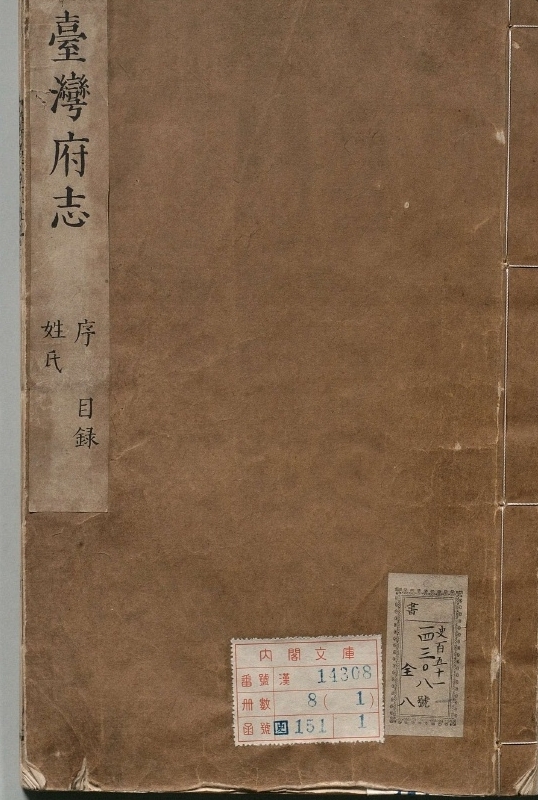 臺灣府志
序 目録
姓氏
内閣文庫
番號 漢 14308
冊數 8(1)
函號 史 151 1
書
史百五十一
一四三〇八號
全八